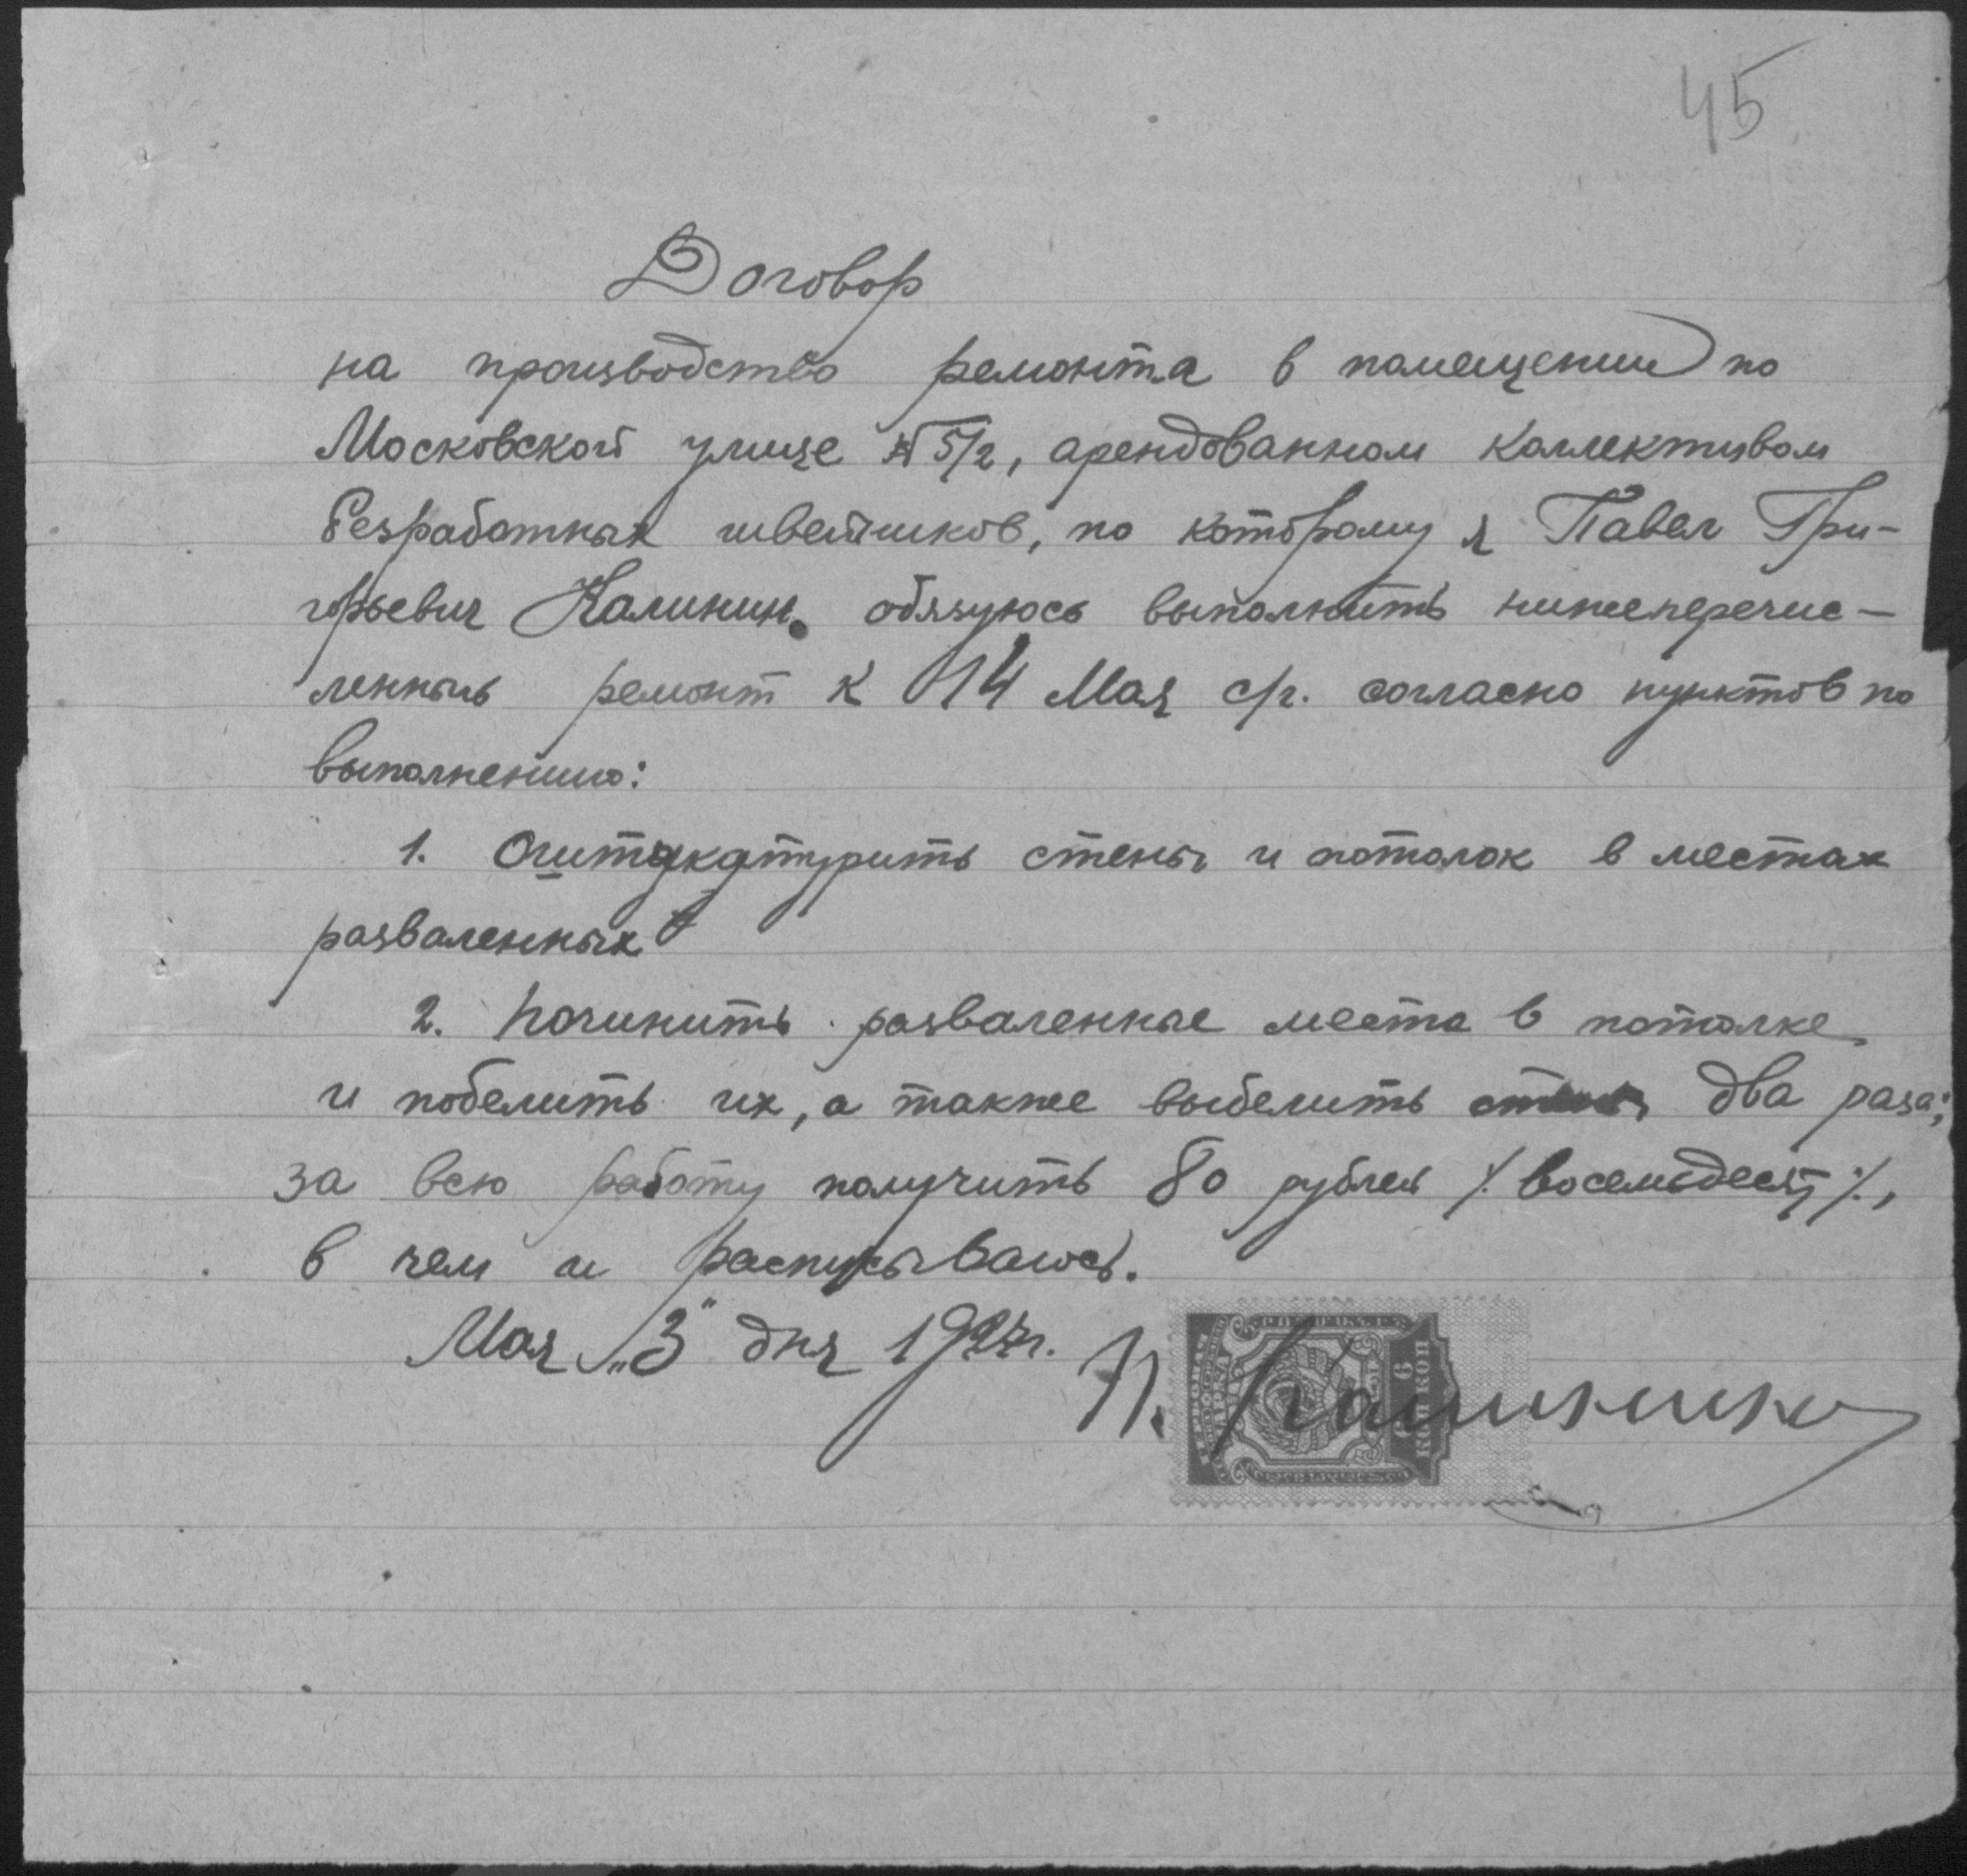 45
Договор
на производство ремонта в помещении по
Московской улице № 5/2, арендованном коллективом
безработных швейников, по которому я Павел Гри-
горьевич Калинин обязуюсь выполнить нижеперечис-
ленный ремонт к 14 Мая с/г. согласно пунктов по
выполнению:
1. Оштукатурить стены и потолок в местах
разваленных
2. Починить разваленные места в потолке
и побелить их, а также выбелить стены два раза;
за всю работу получить 80 рублей /. восемьдесят ./,
в чем и расписываюсь.
Мая „3" дня 1927г.
П. Калинин
6 6
КОП КОП